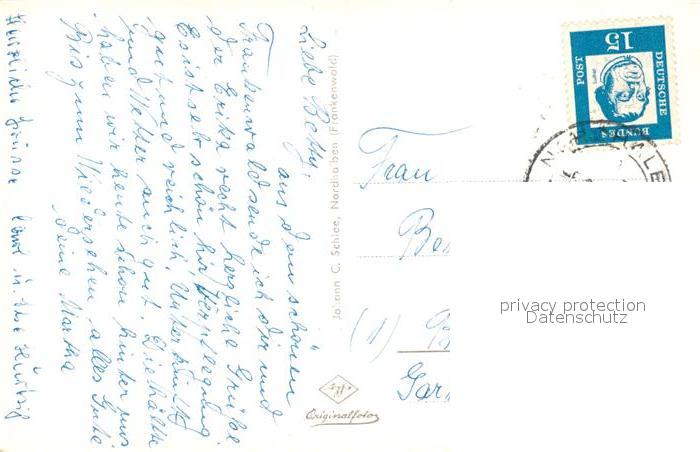 Liebe Betty,
aus dem schönen
Frankenwald sende ich dir und
der Erika recht herzliche Grüße
Es ist sehr schön hir Verpflegung
gut und reichlich. Unterkunft
und Wetter auch gut. Die Hälfte
haben wir heute schon hinter uns
Bis zum Wiedersehen alles Gute
deine Martha
Herzliche Grüsse
Johann C. Schlee, Nordhalben (Frankenwald)
Originalfoto
15
DEUTSCHE
BUNDES
POST
Frau
(1)
privacy protection
Datenschutz